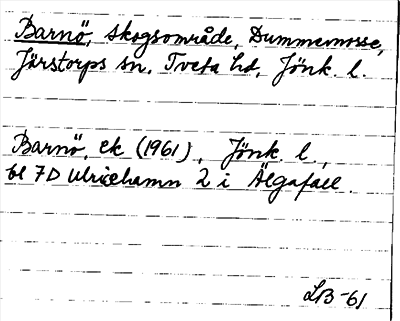 Barnö, skogsområde, Dummemosse,
Järstorps sn, Tveta hd, Jönk. l.
Barnö, ek (1961), Jönk. l.,
bl 7D Ulricehamn 2 i Älgafall.
LB-61